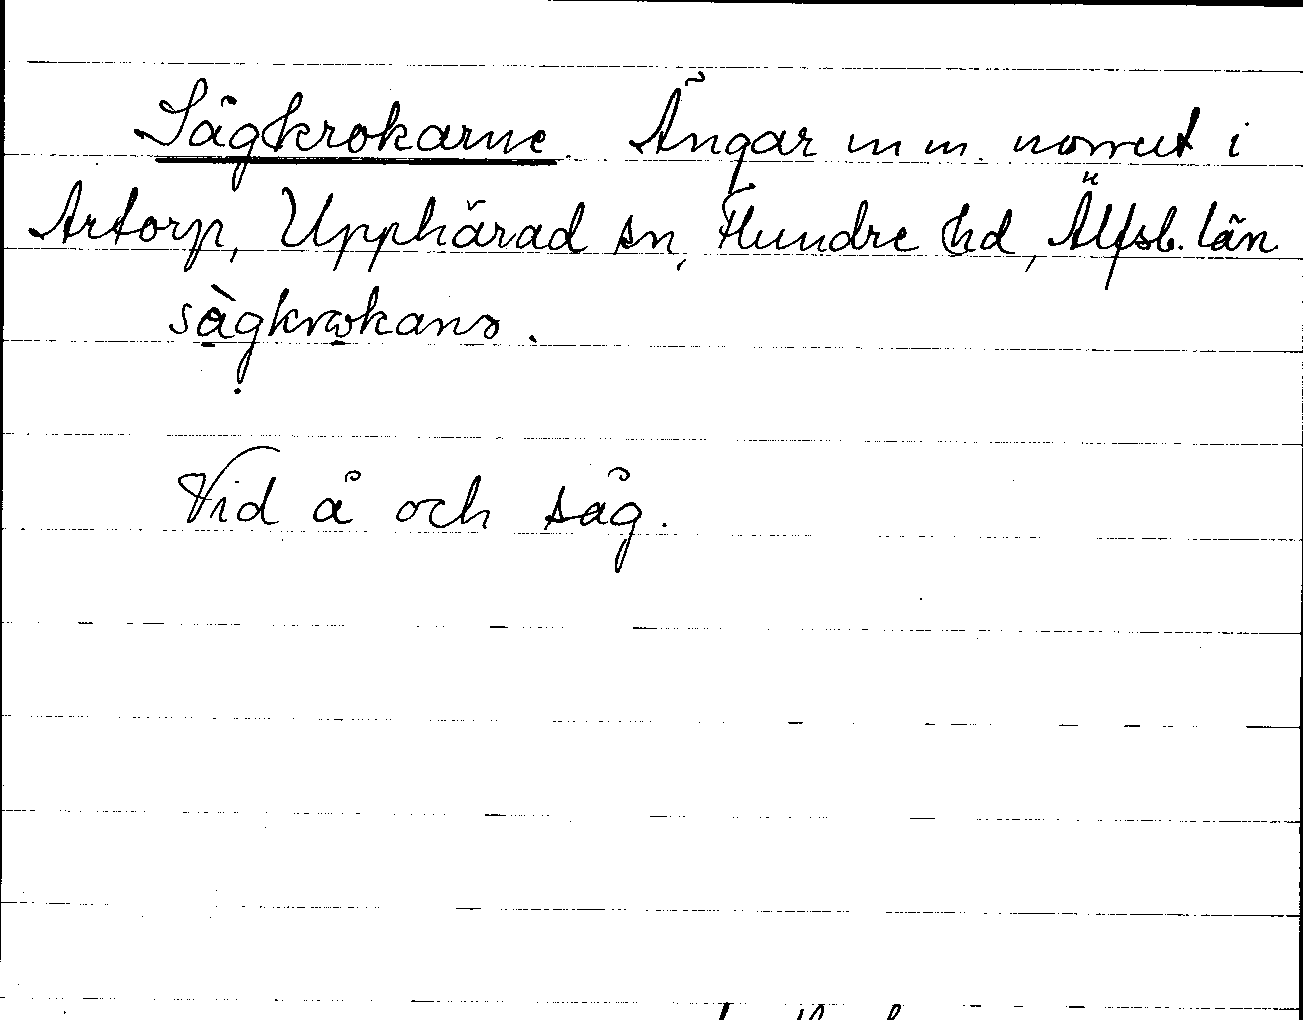 Sågkrokarne. Ängar m m. norrut i
Artorp, Upphärad sn, Flundre hd, Älfsb. län
sågkrokans.
Vid å och såg.